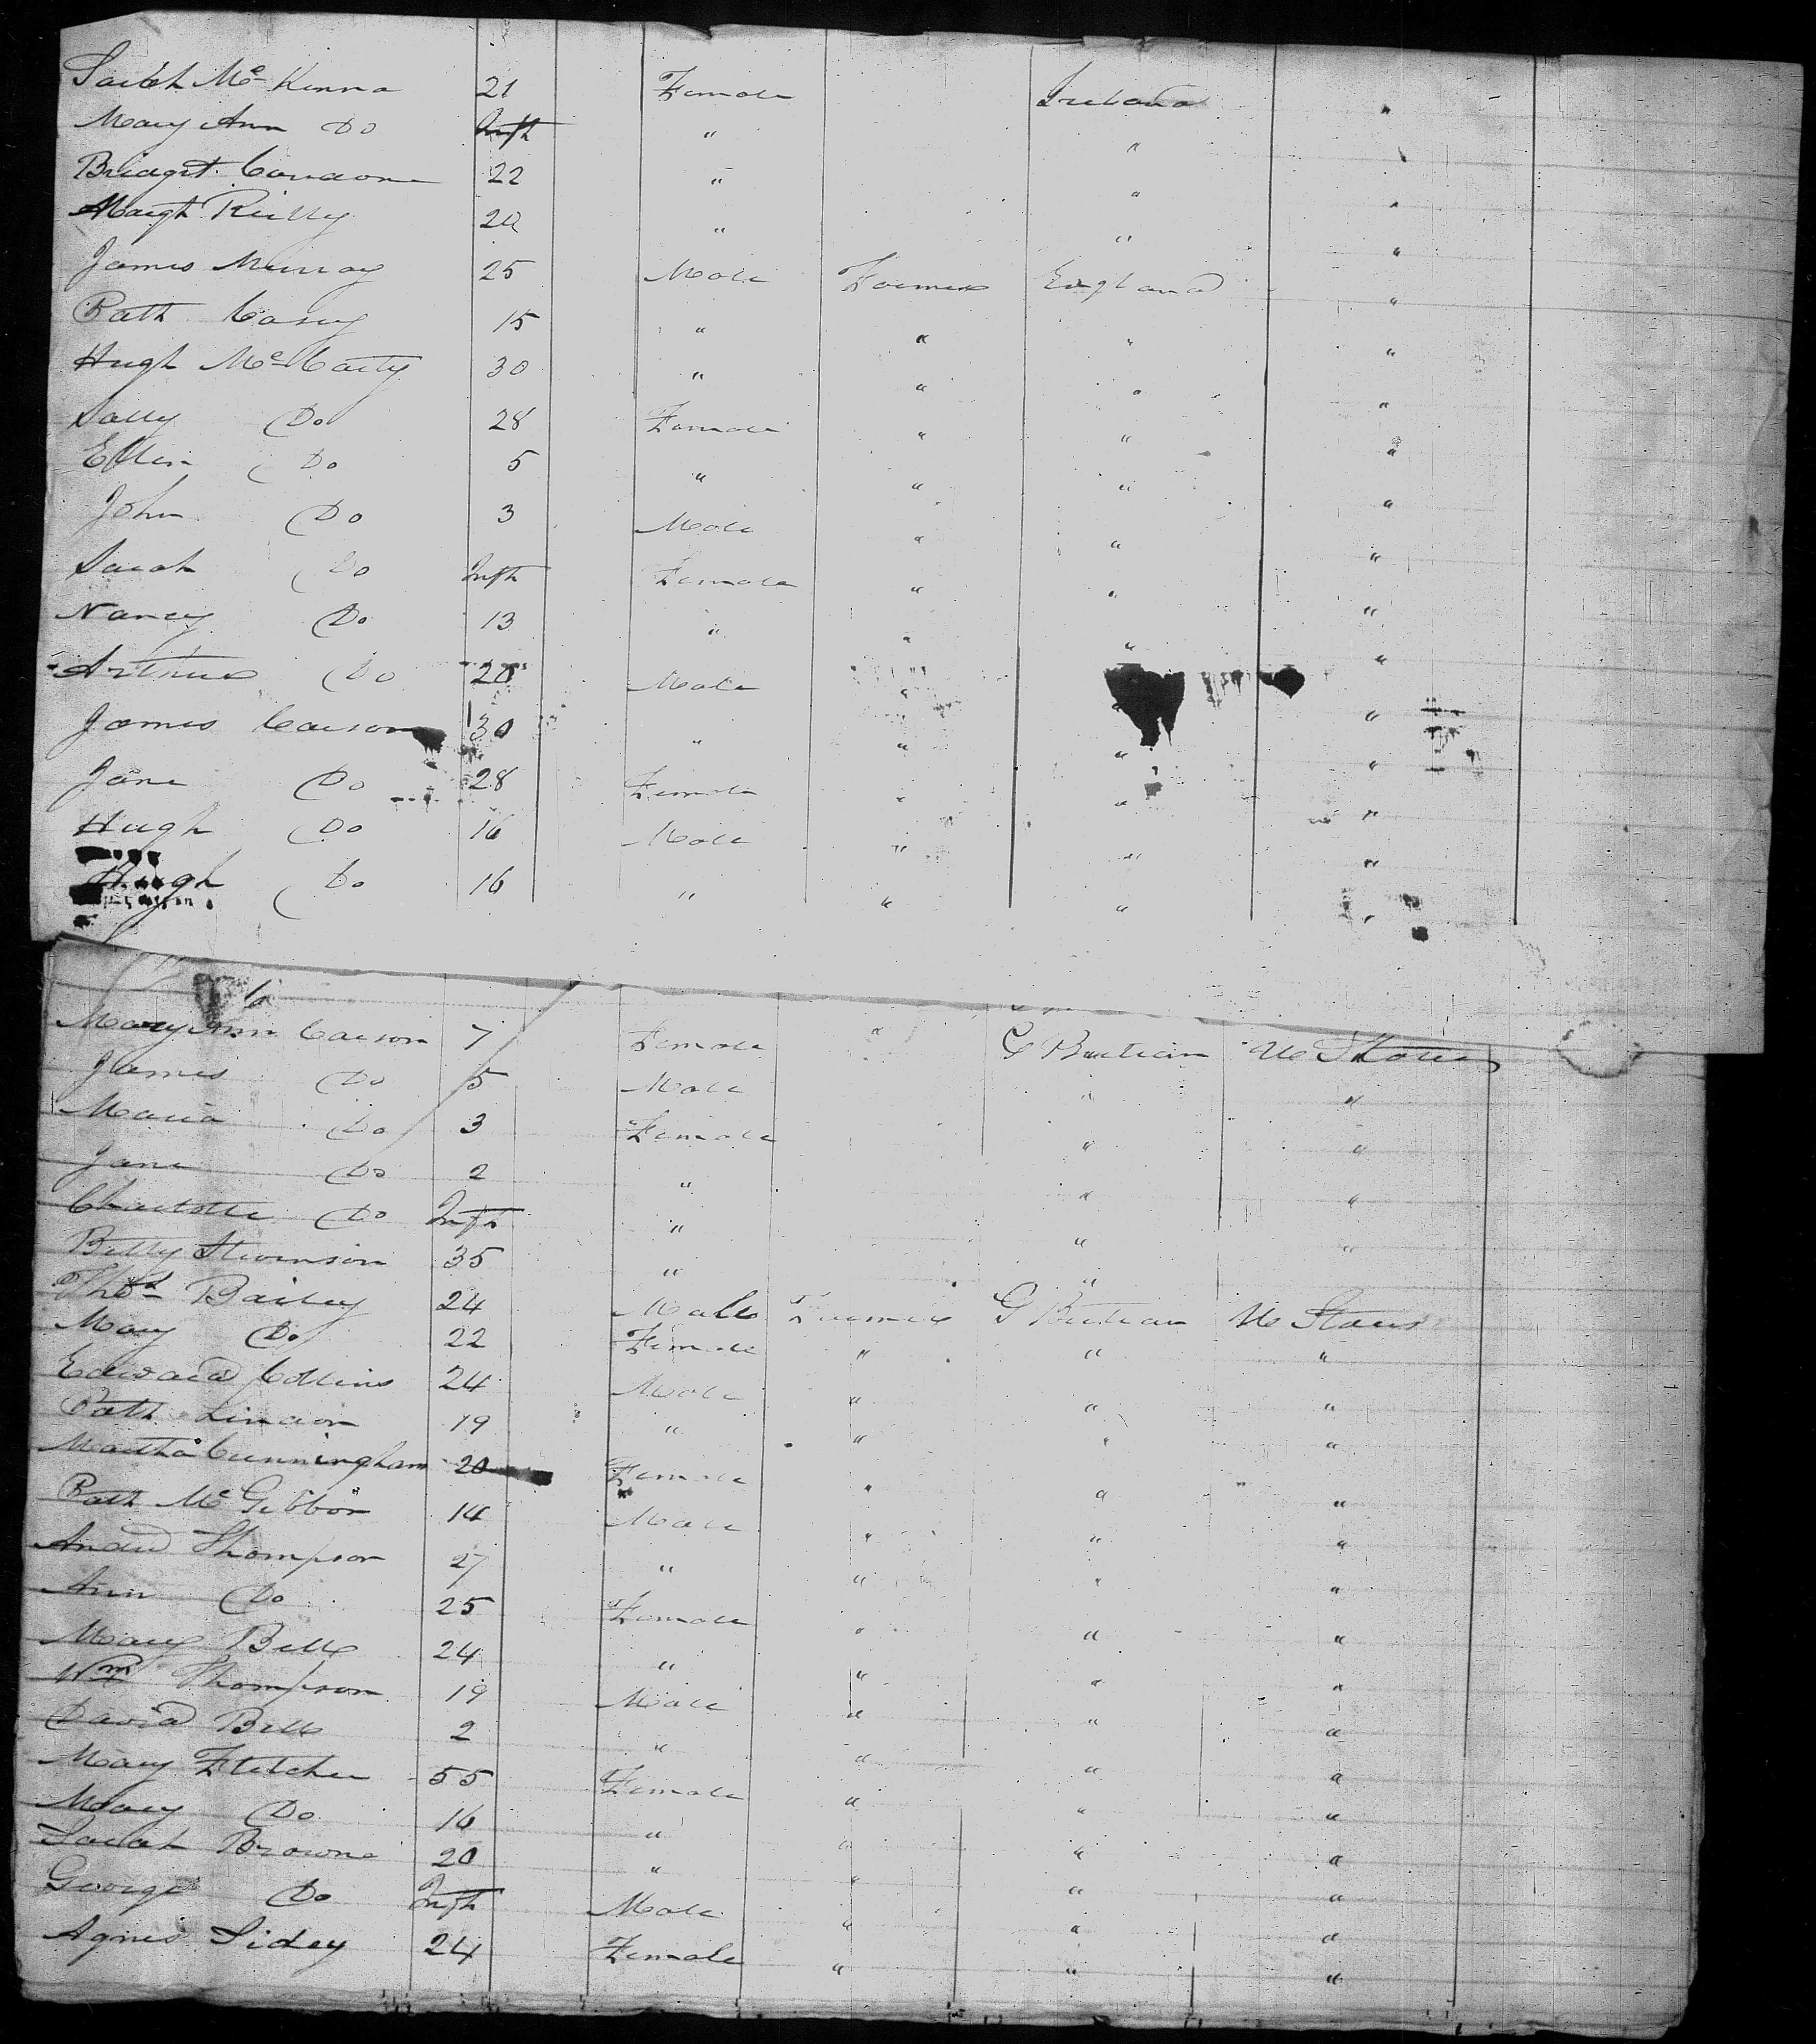 Sarah McKenna 21 Female Ireland "
Mary Ann Do Inft " " "
Bridget 22 " " "
Margt Reilly 20 " " "
James Murray 25 Male Farmer England "
Patk Casey 15 " " " "
Hugh McCarty 30 " " " "
Sally Do 28 Female " " "
Ellen Do 5 " " " "
John Do 3 Male " " "
Sarah Do Inft Female " " "
Nancy Do 13 " " " "
Arthur Do 20 Male " "
James Carson 30 " " " "
Jane Do 28 Female " " "
Hugh Do 16 Male " " "
Hugh Do 16 " " " "
Mary Ann Carson 7 Female " G Britain U States
James Do 5 Male " "
Maria Do 3 Female " "
Jane Do 2 " " "
Charlotte Do Inft " " "
Betty Stevenson 35 " "
Thos Bailey 24 Male Farmer G Britain U States
Mary Do 22 Female " " "
Edward Collins 24 Male " " "
Patk Lindon 19 " " " "
Martha Cunningham 20 Female " " "
Patk McGibbon 14 Male " " "
Andw Thompson 27 " " " "
Ann Do 25 Female " " "
Mary Bell 24 " " " "
Wm Thompson 19 Male " " "
David Bell 2 " " " "
Mary Fletcher 55 Female " " "
Mary Do 16 " " " "
Sarah Browne 20 " " " "
George Do Inft Male " " "
Agnes Sidey 24 Female " " "